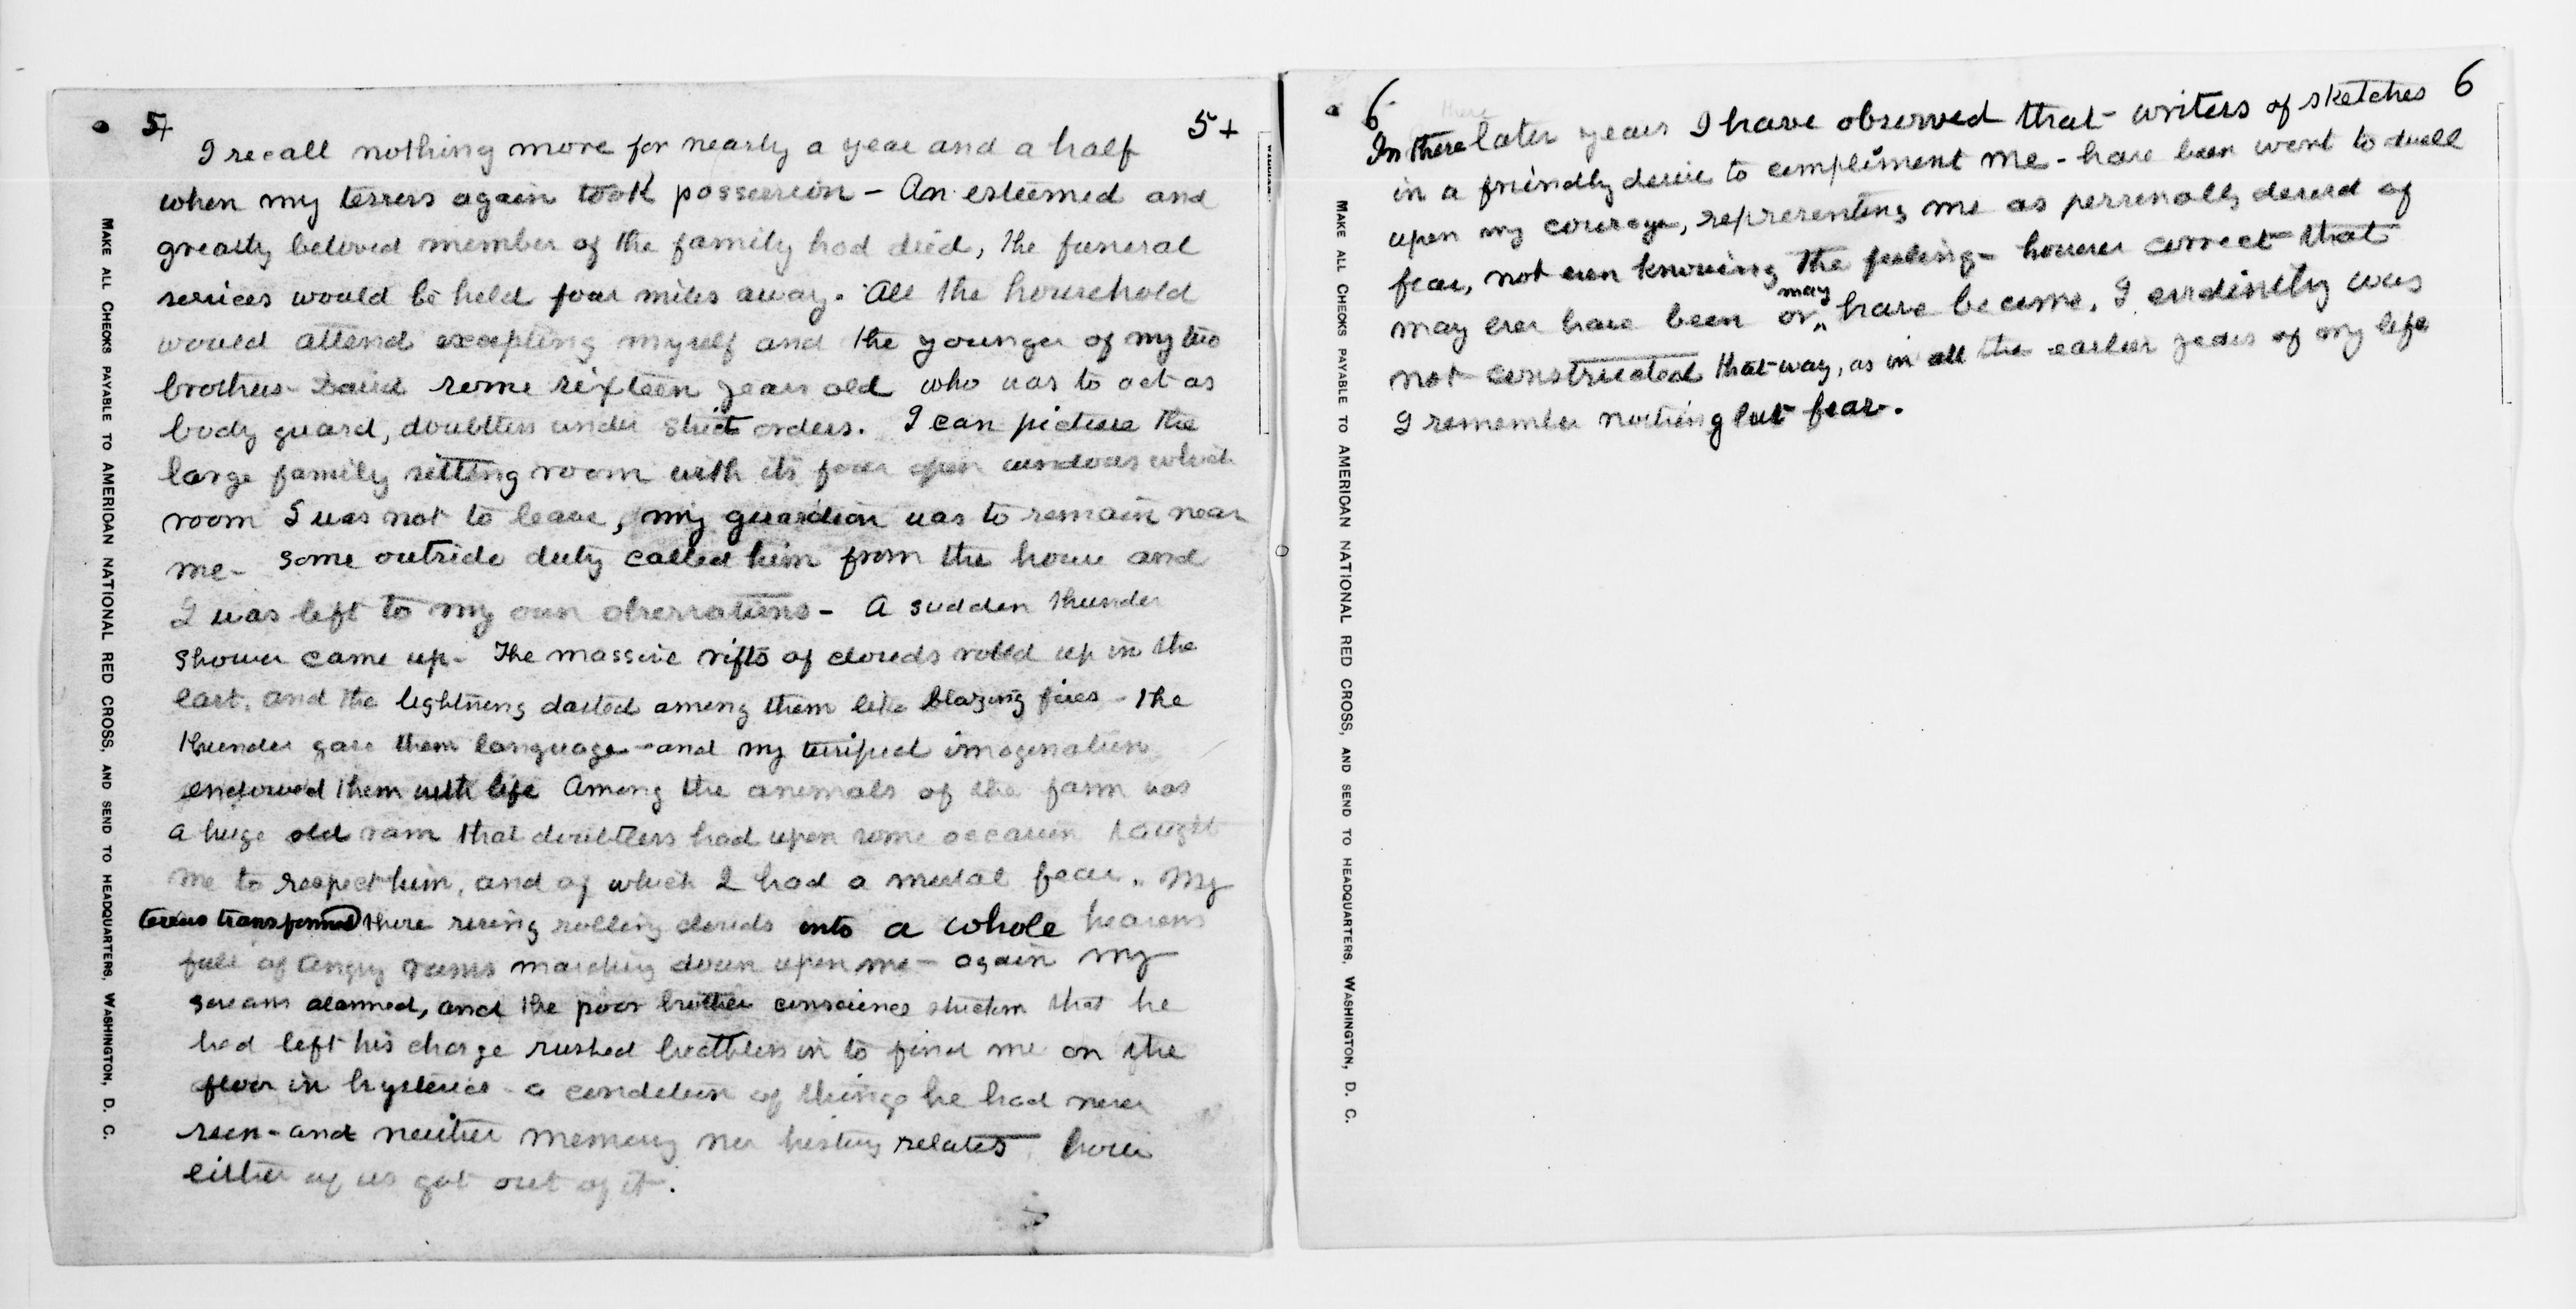 5+ 5+
I recall nothing more for nearly a year and a half
when my terrors again took possession - An esteemed and
greatly beloved member of the family had died, the funeral
services would be held four miles away. All the household
would attend excepting myself and the younger of my two
brothers - David some sixteen years old who was to act as
body guard, doubtless under strict orders. I can picture the
large family sitting room with its four open windows which
room I was not to leave, my guardian was to remain near
me - some outside duty called him from the house and
I was left to my own observations - A sudden thunder
shower came up - The massive rifts of clouds rolled up in the
east, and the lightning darted among them like blazing fires - The
thunder gave them language - and my terrified imagination
endowed them with life Among the animals of the farm was
a huge old ram that doubtless had upon some occasion taught
me to respect him, and of which I had a mortal fear. My
terrors transformed those rising rolling clouds into a whole heavens
full of angry rams marching down upon me - again my
screams alarmed, and the poor brother conscience stricken that he
had left his charge rushed breathless in to find me on the
floor in hysterics - a condition of things he had never
seen - and neither memory nor history relates how
either of us got out of it.
MAKE ALL CHECKS PAYABLE TO AMERICAN NATIONAL RED CROSS, AND SEND TO HEADQUARTERS, WASHINGTON, D. C.
6 6
In these later years I have observed that - writers of sketches
in a friendly desire to compliment me - have been wont to dwell
upon my courage, representing me as personally devoid of
fear, not even knowing the feeling - however correct that
may
may ever have been or have become, I evidently was
not constructed that way, as in all the earlier years of my life
I remember nothing but fear.
MAKE ALL CHECKS PAYABLE TO AMERICAN NATIONAL RED CROSS, AND SEND TO HEADQUARTERS, WASHINGTON, D. C.